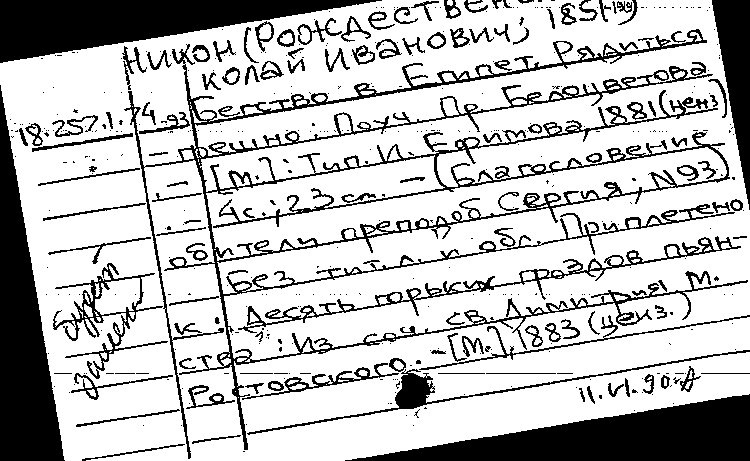 НИКОН (РОЖДЕСТВЕНС
КОЛАЙ ИВАНОВИЧ; 1851-1919
18.257.1.74-93
Бегство в Египет. Рядиться
грешно: Поуч. Пр. Белоцветова
. – [М.]: Тип. И. Ефимова, 1881 (ценз.)
. – 4 с.; 23 см. – (Благословение
обители преподоб. Сергия; N93).
Без тит. л. и обл. Приплетено
к: Десять горьких гроздов пьян-
ства: Из соч. св. Димитрия М.
Ростовского. – [М.], 1883 (ценз.)
будет
замена
11.VI.90г.